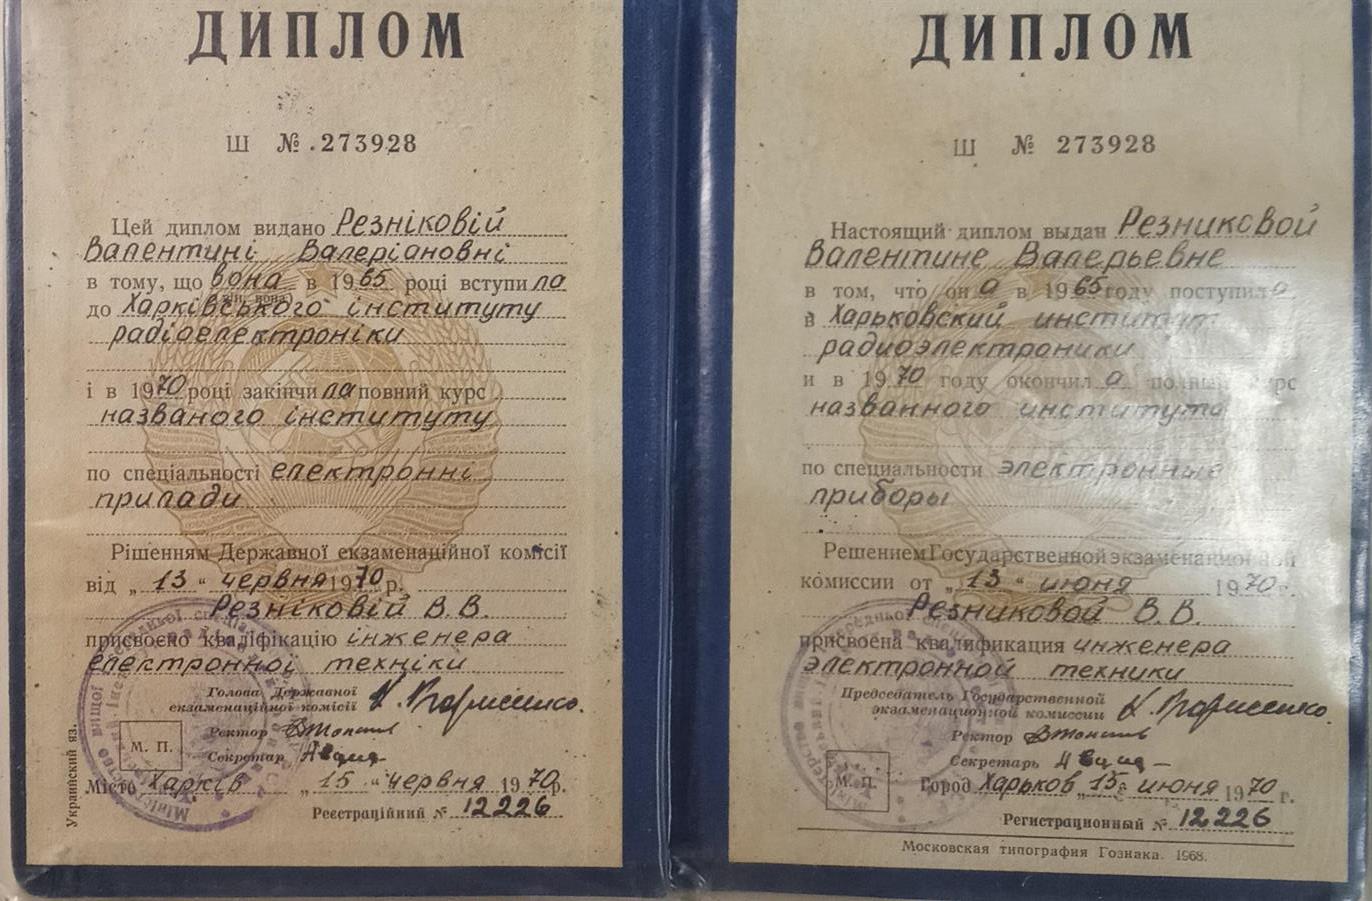 ДИПЛОМ
Ш № 273928
Цей диплом видано Резніковій
Валентині Валеріановні
в тому, що вона в 1965 році вступила
до Харківського інституту
радіоелектроніки
і в 1970 році закінчила повний курс
названого інституту
по спеціальності електронні
прилади
Рішенням Державної екзаменаційної комісії
від „13“ червня 1970 р.
Резніковій В.В.
присвоєно кваліфікацію інженера
електронної техніки
Голова Державної
екзаменаційної комісії К. Борисенко.
Ректор
Секретар
М. П.
Місто Харків „15“ червня 1970 р.
Реєстраційний № 12226
Украинский яз.
ДИПЛОМ
Ш № 273928
Настоящий диплом выдан Резниковой
Валентине Валерьевне
в том, что она в 1965 году поступила
в Харьковский институт
радиоэлектроники
и в 1970 году окончила полный курс
названного института
по специальности электронные
приборы
Решением Государственной экзаменационной
комиссии от „13“ июня 1970 г.
Резниковой В.В.
присвоена квалификация инженера
электронной техники
Председатель Государственной
экзаменационной комиссии К. Борисенко.
Ректор
Секретарь
М. П.
Город Харьков „15“ июня 1970 г.
Регистрационный № 12226
Московская типография Гознака. 1968.